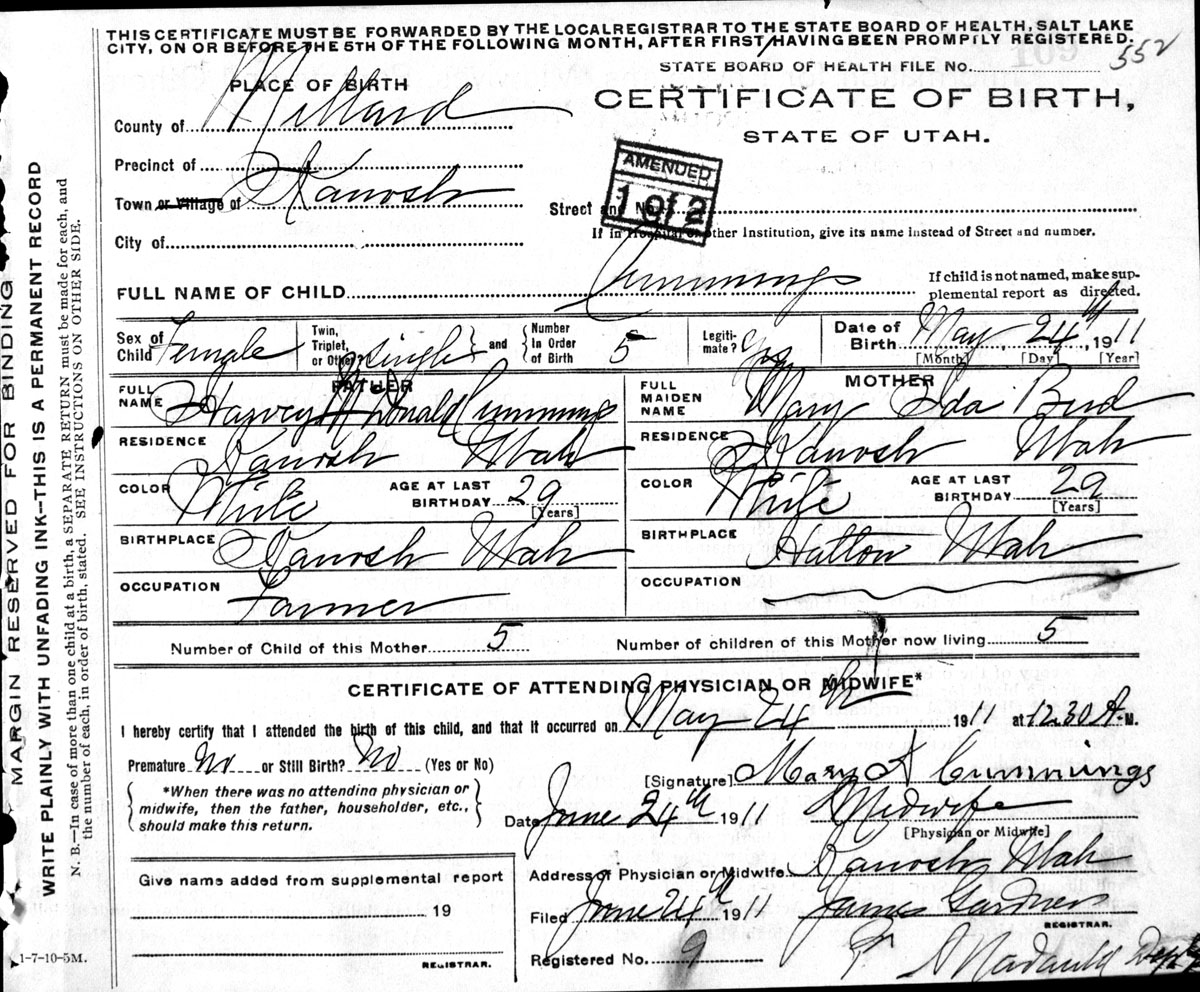 THIS CERTIFICATE MUST BE FORWARDED BY THE LOCAL REGISTRAR TO THE STATE BOARD OF HEALTH, SALT LAKE
CITY, ON OR BEFORE THE 5TH OF THE FOLLOWING MONTH, AFTER FIRST HAVING BEEN PROMPTLY REGISTERED.
STATE BOARD OF HEALTH FILE NO. 552
109
PLACE OF BIRTH
CERTIFICATE OF BIRTH,
STATE OF UTAH.
County of Millard
Precinct of
Town or Village of Kanosh
AMENDED
1 of 2
Street and No.
City of
If in Hospital or other Institution, give its name instead of Street and number.
FULL NAME OF CHILD Cummings
If child is not named, make sup-
plemental report as directed.
Sex of Child Female
Twin, Triplet, or Other? Single
and
Number In Order of Birth 5
Legiti- mate? Yes
Date of Birth May 24th, 1911
[Month] [Day] [Year]
FATHER
FULL NAME Harvey McDonald Cummings
RESIDENCE Kanosh Utah
COLOR White
AGE AT LAST BIRTHDAY 29
[Years]
BIRTHPLACE Kanosh Utah
OCCUPATION Farmer
MOTHER
FULL MAIDEN NAME Mary Ida Bird
RESIDENCE Kanosh Utah
COLOR White
AGE AT LAST BIRTHDAY 29
[Years]
BIRTHPLACE Hatton Utah
OCCUPATION
Number of Child of this Mother 5
Number of children of this Mother now living 5
CERTIFICATE OF ATTENDING PHYSICIAN OR MIDWIFE*
I hereby certify that I attended the birth of this child, and that it occurred on May 24th 1911 at 12.30 A.M.
Premature No or Still Birth? No (Yes or No)
*When there was no attending physician or
midwife, then the father, householder, etc.,
should make this return.
[Signature] Mary A Cummings
Date June 24th 1911 Midwife
[Physician or Midwife]
Address of Physician or Midwife Kanosh Utah
Filed June 24th 1911 James Gardner
REGISTRAR.
Registered No. 9
Give name added from supplemental report
19
REGISTRAR.
1-7-10-5M.
MARGIN RESERVED FOR BINDING
WRITE PLAINLY WITH UNFADING INK--THIS IS A PERMANENT RECORD
N. B.—In case of more than one child at a birth, a SEPARATE RETURN must be made for each, and
the number of each, in order of birth, stated. SEE INSTRUCTIONS ON OTHER SIDE.